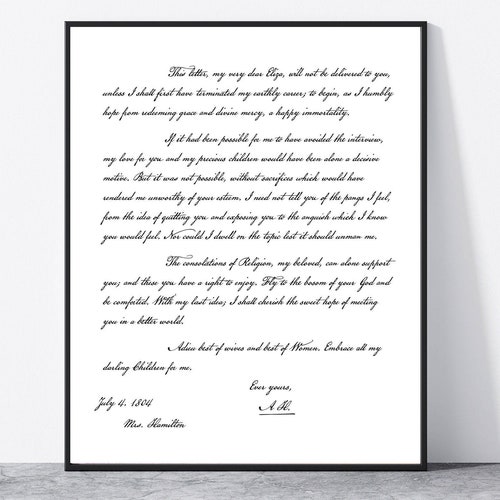 This letter, my very dear Eliza, will not be delivered to you,
unless I shall first have terminated my earthly career; to begin, as I humbly
hope from redeeming grace and divine mercy, a happy immortality.
If it had been possible for me to have avoided the interview,
my love for you and my precious children would have been alone a decisive
motive. But it was not possible, without sacrifices which would have
rendered me unworthy of your esteem. I need not tell you of the pangs I feel,
from the idea of quitting you and exposing you to the anguish which I know
you would feel. Nor could I dwell on the topic lest it should unman me.
The consolations of Religion, my beloved, can alone support
you; and these you have a right to enjoy. Fly to the bosom of your God and
be comforted. With my last idea; I shall cherish the sweet hope of meeting
you in a better world.
Adieu best of wives and best of Women. Embrace all my
darling Children for me.
Ever yours,
A H.
July 4. 1804
Mrs. Hamilton